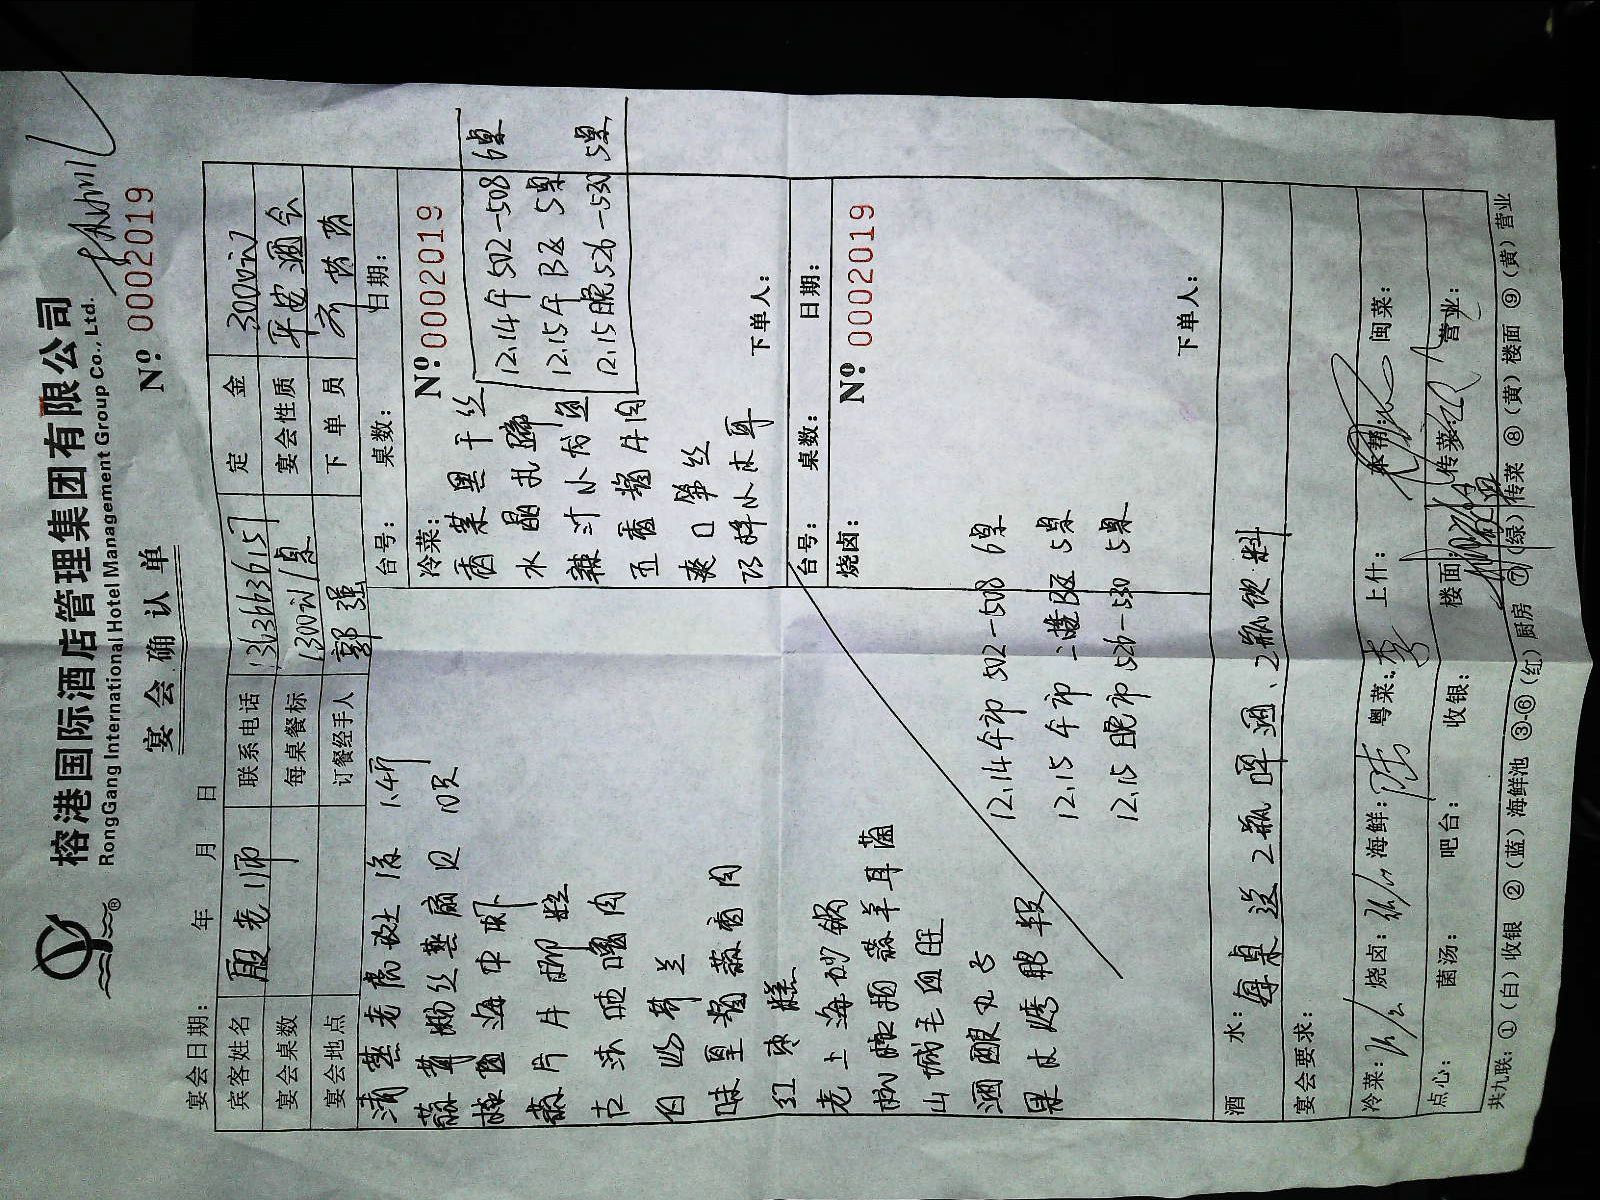 榕港国际酒店管理集团有限公司
RongGang International Hotel Management Group Co., Ltd.
宴会确认单
№ 0002019
宴会日期： 年 月 日
宾客姓名 殷老师 联系电话 13636636157 定金 3000元
宴会桌数 每桌餐标 1300元/桌 宴会性质 平安酒会
宴会地点 订餐经手人 郭强 下单员
清蒸老虎斑 1条 1.4斤
蒜蓉粉丝蒸扇贝 10只
椒盐海中虾
蒜片片
古法
西兰
味至酱蒜香肉
红枣糕
老上海砂锅
山城毛血旺
酒酿丸子
果
台号： 桌数： 日期：
冷菜： № 0002019
香菜黑干丝
水晶
辣汁小
五香酱牛肉
爽口笋丝
巧拌小木耳
12.14午 502-508 6桌
12.15午 B区 5桌
12.15晚 526-530 5桌
下单人：
台号： 桌数： 日期：
烧卤： № 0002019
下单人：
12.14午市 502-508 6桌
12.15午市 二楼B区 5桌
12.15晚市 526-530 5桌
酒水：每桌送2瓶啤酒、2瓶饮料
宴会要求：
冷菜： 烧卤： 海鲜： 粤菜： 上什： 本帮： 闽菜：
点心： 菌汤： 吧台： 收银： 楼面： 传菜： 营业：
共九联：①（白）收银 ②（蓝）海鲜池 ③-⑥（红）厨房 ⑦（绿）传菜 ⑧（黄）楼面 ⑨（黄）营业